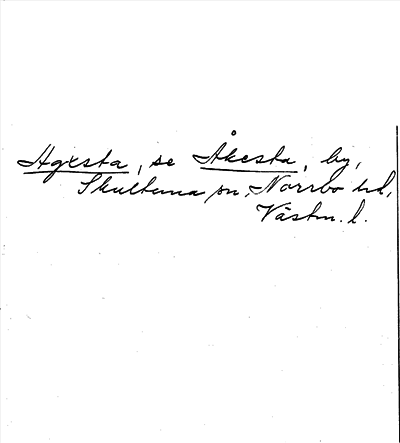 Agesta, se Åkesta, by,
Skultuna sn, Norrbo hd,
Västm. l.